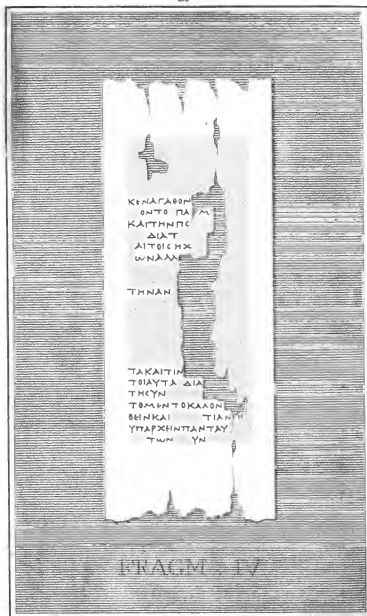 ΚΕΝΑΓΑΘΟΝ
ΟΝΤΟ ΠΑΡΜ
ΚΑΙΤΗΝΠΟ
ΔΙΑΤ
ΑΙΤΟΙCΗΧ
ΩΝΑΛΛΑ
ΤΗΝΑΝ
ΤΑΚΑΙΤΙΝ
ΤΟΙΑΥΤΑ ΔΙΑ
ΤΗCΥΝ
ΤΟΜΕΝΤΟΚΑΛΟΝ
ΘΕΙΝΚΑΙ ΤΙΑΝ
ΥΠΑΡΧΕΙΝΠΑΝΤΑΥ
ΤΩΝ ΥΝ
FRAGM. IV